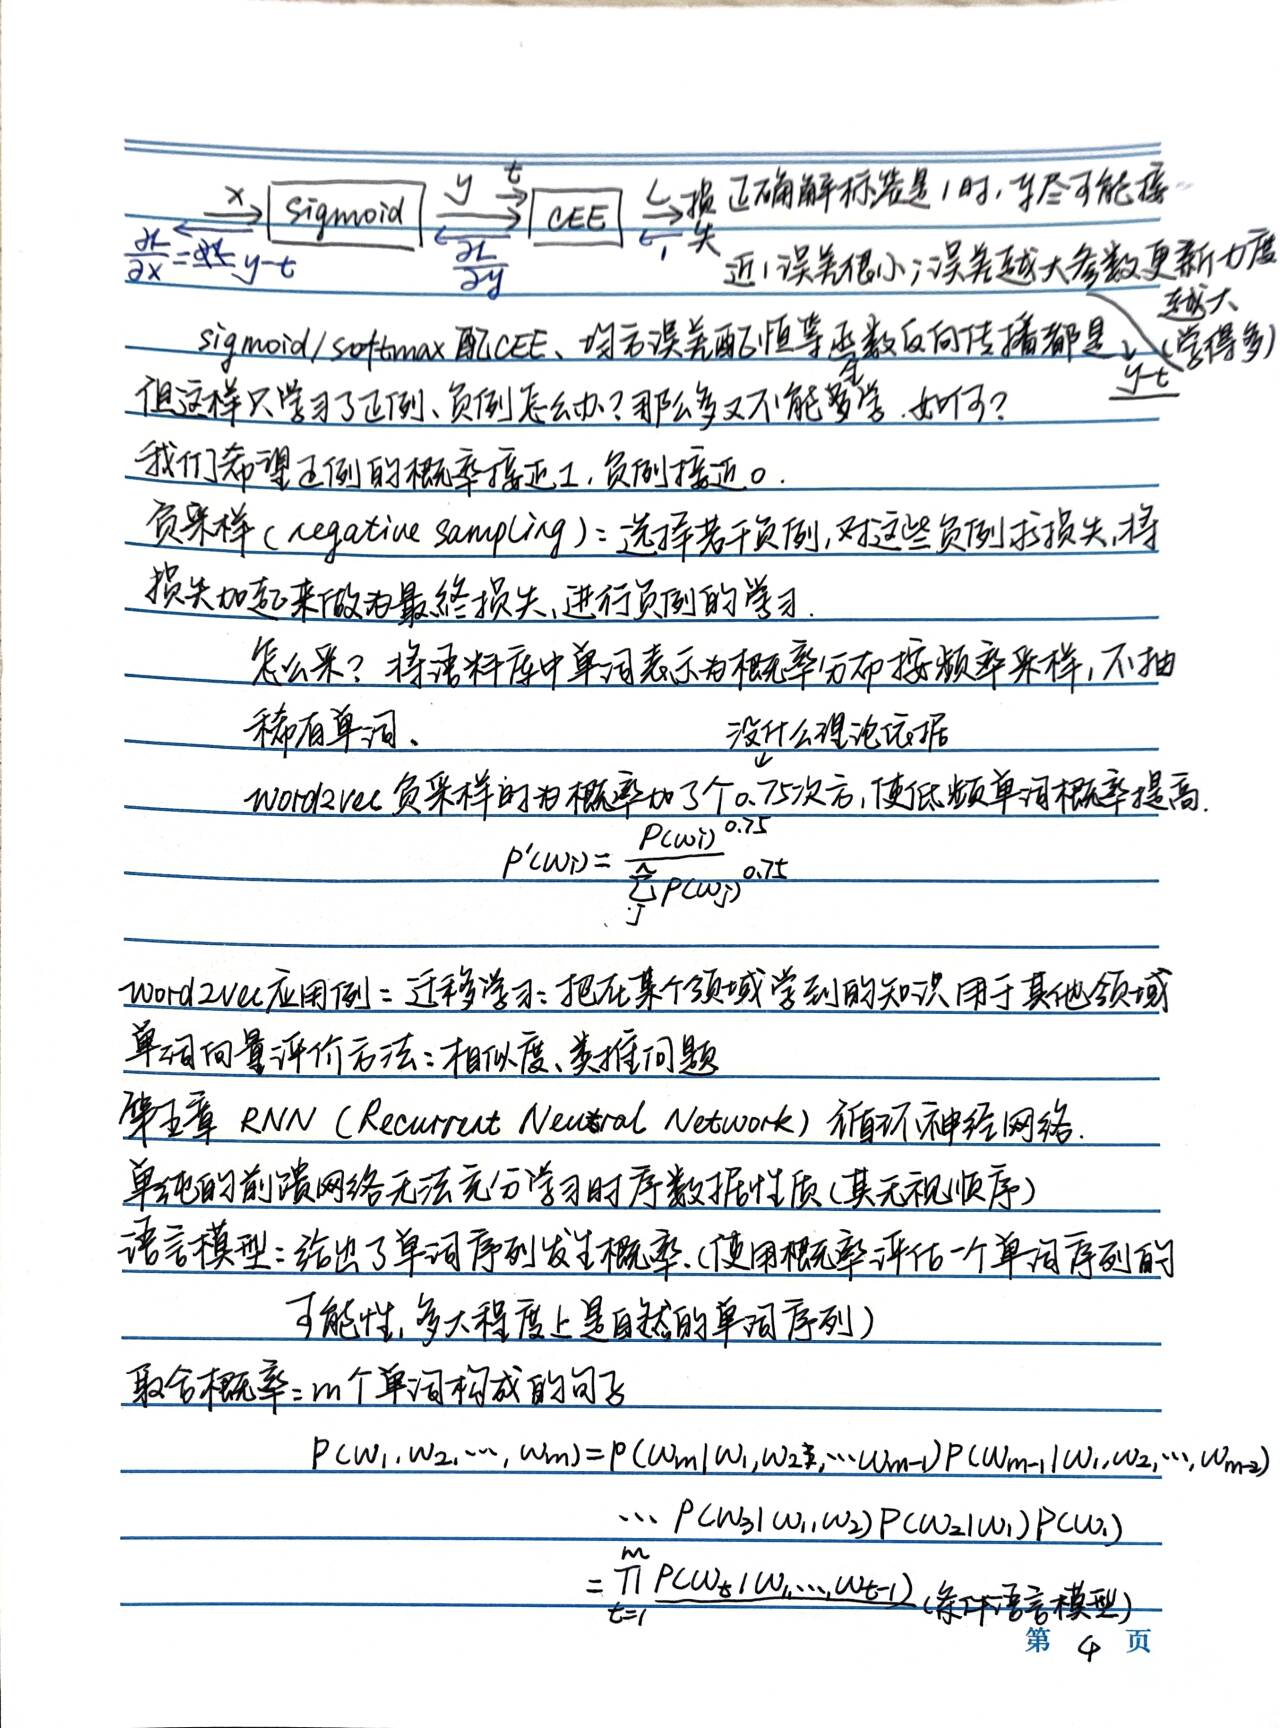 x sigmoid y t CEE L 损失 正确解标签是1时,y尽可能接
∂L/∂x = y-t ∂L/∂y 1 近1误差很小;误差越大参数更新力度
越大
(学得多)
sigmoid/softmax配CEE、均方误差配恒等函数反向传播都是 y-t
但这样只学习了正例、负例怎么办?那么多又不能全学.如何?
我们希望正例的概率接近1,负例接近0.
负采样(negative sampling):选择若干负例,对这些负例求损失,将
损失加起来做为最终损失、进行负例的学习.
怎么采?将语料库中单词表示为概率分布按频率采样,不抽
稀有单词、
没什么理论依据
word2vec负采样时为概率加了个0.75次方,使低频单词概率提高.
P'(wi)= P(wi)^0.75 / Σ_j^n P(wj)^0.75
word2vec应用例:迁移学习:把在某个领域学到的知识用于其他领域
单词向量评价方法:相似度、类推问题
第五章 RNN (Recurrent Neutral Network) 循环神经网络.
单纯的前馈网络无法充分学习时序数据性质(其无视顺序)
语言模型:给出了单词序列发生概率.(使用概率评估一个单词序列的
可能性,多大程度上是自然的单词序列)
联合概率:m个单词构成的句子
P(w1,w2,…,wm)=P(wm|w1,w2,…wm-1)P(wm-1|w1,w2,…,wm-2)
… P(w3|w1,w2)P(w2|w1)P(w1)
= ∏_{t=1}^{m} P(wt|w1,…,wt-1) (条件语言模型)
第 4 页